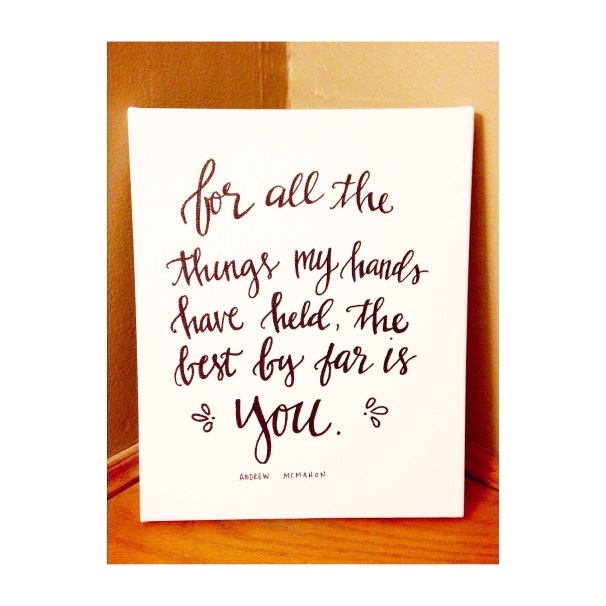 for all the
things my hands
have held, the
best by far is
you.
ANDREW MCMAHON